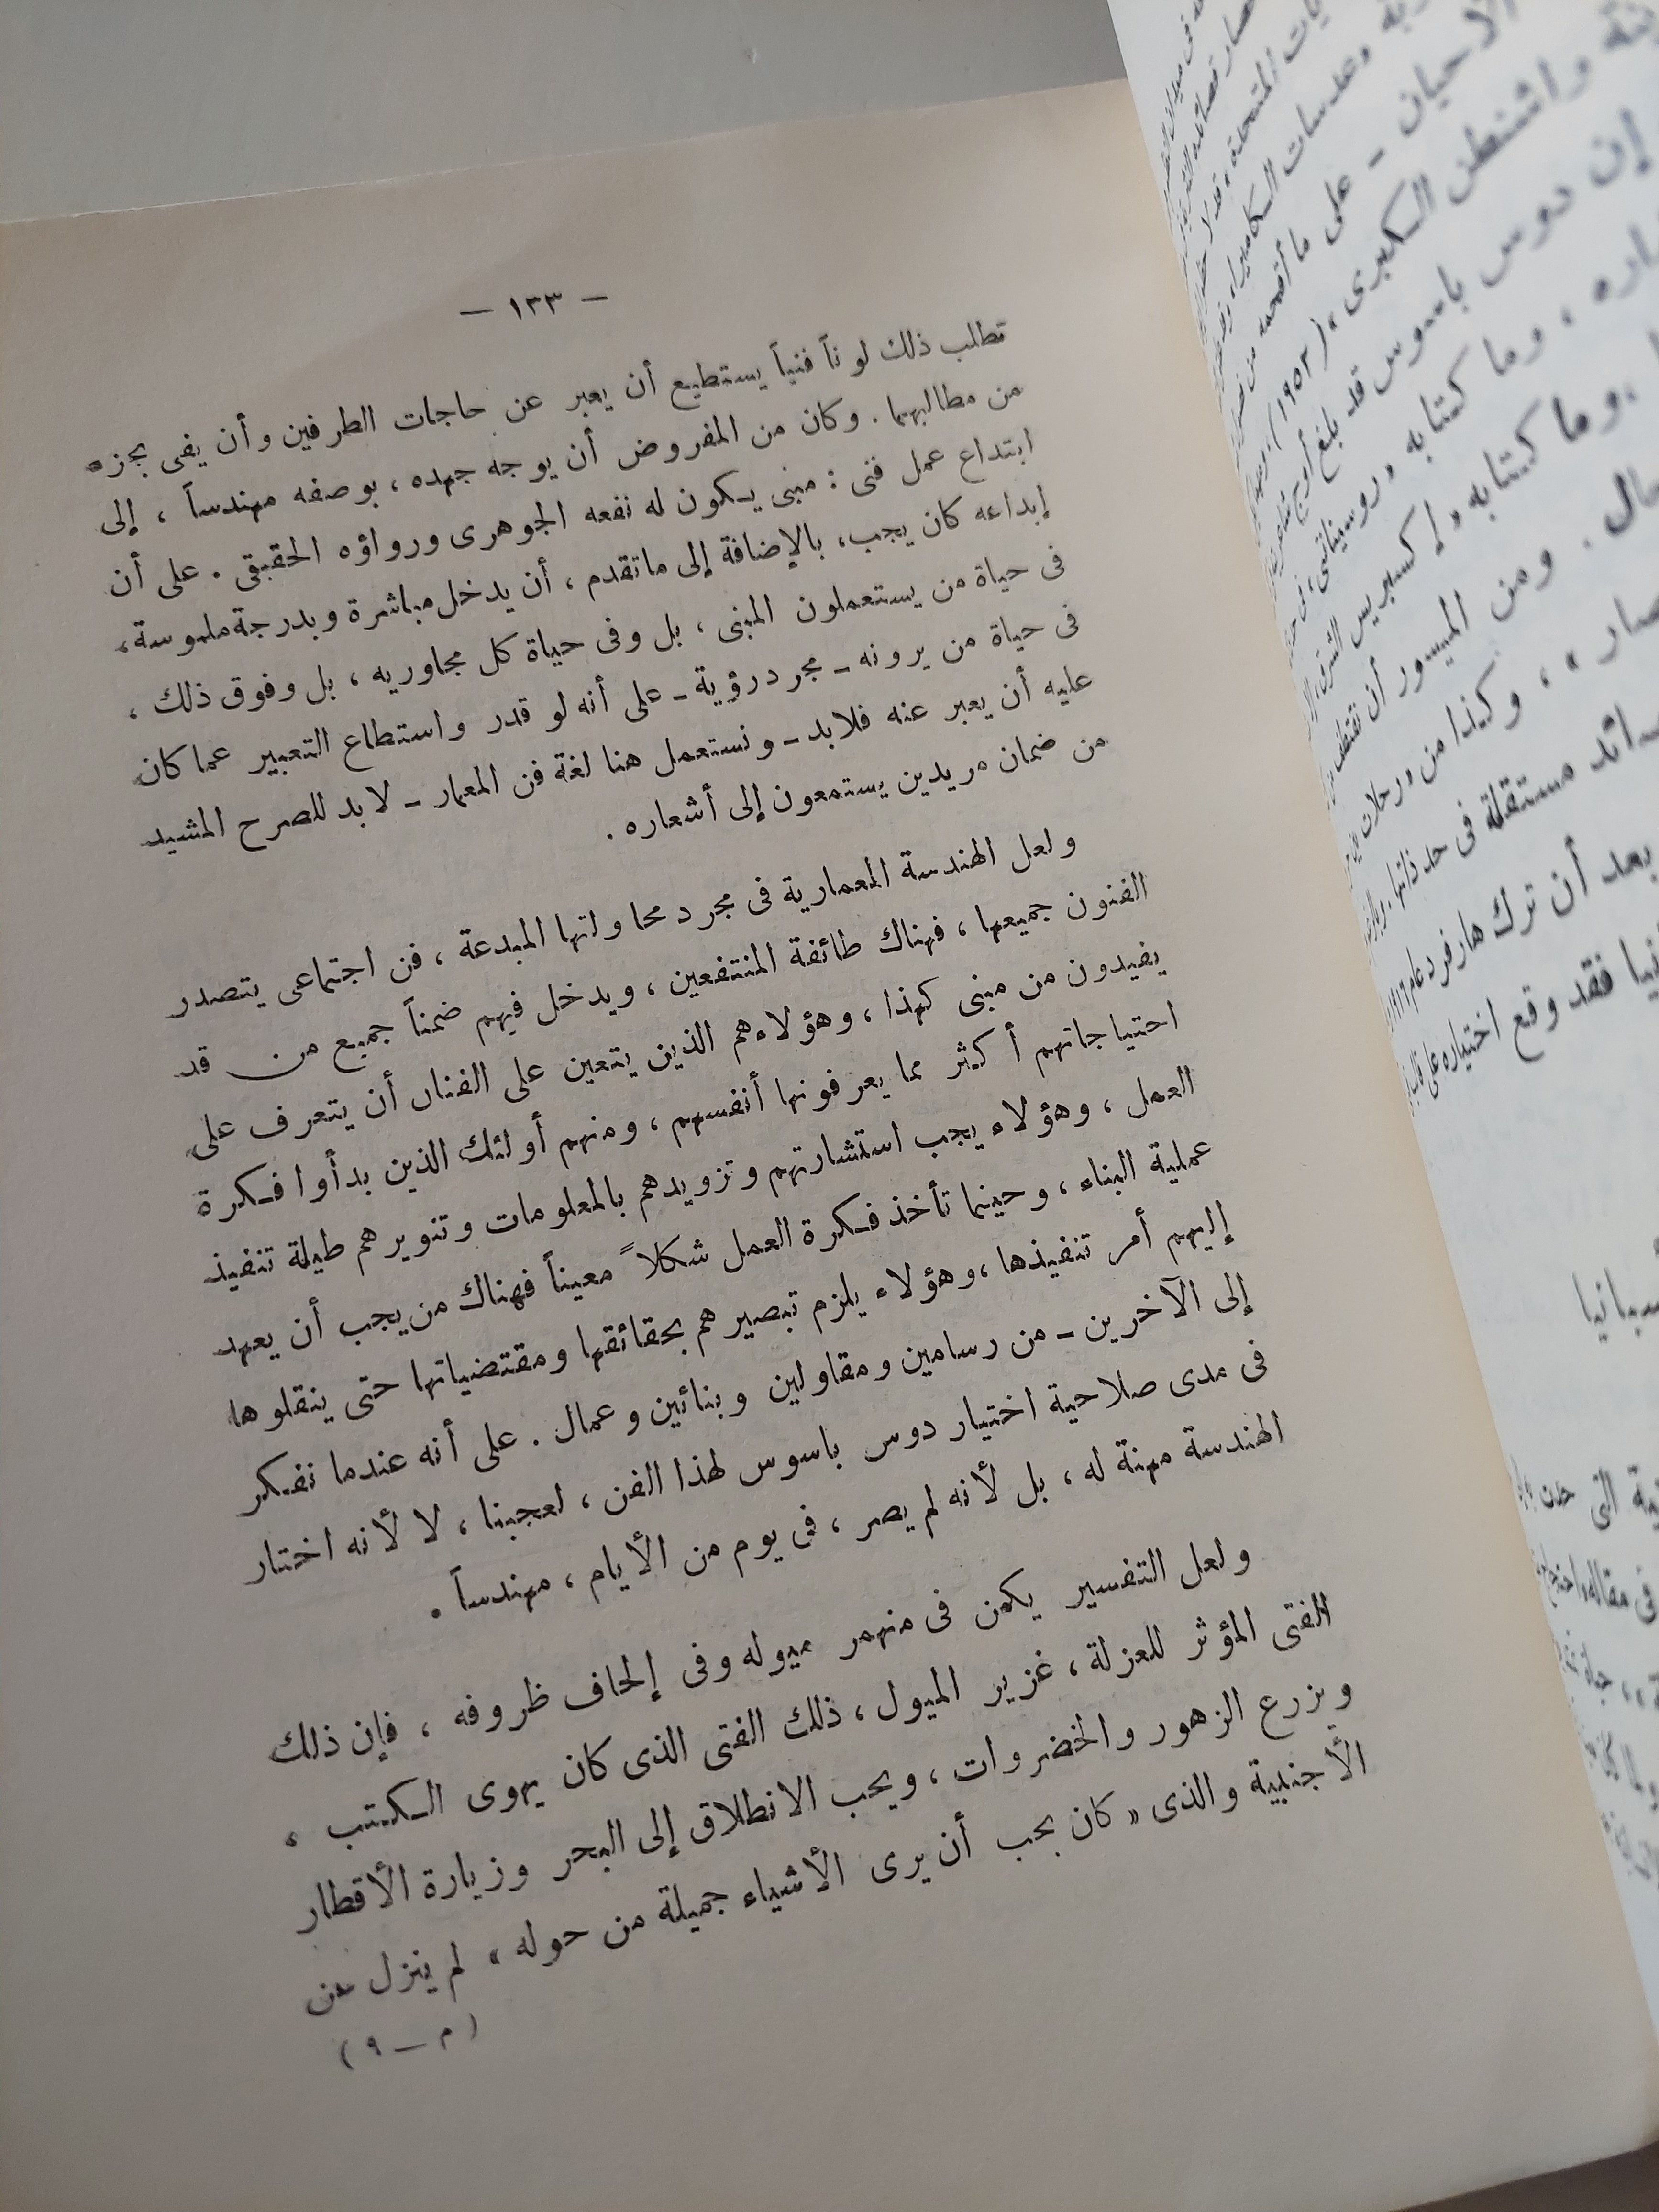 — ١٣٣ —
تطلب ذلك لوناً فنياً يستطيع أن يعبر عن حاجات الطرفين وأن يفى بجزء
من مطالبهما . وكان من المفروض أن يوجه جهده ، بوصفه مهندساً ، إلى
ابتداع عمل فنى : مبنى يكون له نفعه الجوهرى ورواؤه الحقيقى . على أن
إبداعه كان يجب ، بالإضافة إلى ماتقدم ، أن يدخل مباشرة وبدرجة ملموسة ،
فى حياة من يستعملون المبنى ، بل وفى حياة كل مجاوريه ، بل وفوق ذلك ،
فى حياة من يرونه – مجرد رؤية – على أنه لو قدر واستطاع التعبير عما كان
عليه أن يعبر عنه فلابد – ونستعمل هنا لغة فن المعمار – لا بد للصرح المشيد
من ضمان مريدين يستمعون إلى أشعاره .
ولعل الهندسة المعمارية فى مجرد محاولتها المبدعة ، فن اجتماعى يتصدر
الفنون جميعها ، فهناك طائفة المنتفعين ، ويدخل فيهم ضمناً جميع من قد
يفيدون من مبنى كهذا ، وهؤلاء هم الذين يتعين على الفنان أن يتعرف على
احتياجاتهم أكثر مما يعرفونها أنفسهم ، ومنهم أولئك الذين بدأوا فكرة
العمل ، وهؤلاء يجب استشارتهم وتزويدهم بالمعلومات وتنويرهم طيلة تنفيذ
عملية البناء ، وحينما تأخذ فكرة العمل شكلاً معيناً فهناك من يجب أن يعهد
إليهم أمر تنفيذها ، وهؤلاء يلزم تبصيرهم بحقائقها ومقتضياتها حتى ينقلوها
إلى الآخرين – من رسامين ومقاولين وبنائين وعمال . على أنه عندما نفكر
فى مدى صلاحية اختيار دوس باسوس لهذا الفن ، لعجبنا ، لا لأنه اختار
الهندسة مهنة له ، بل لأنه لم يصر ، فى يوم من الأيام ، مهندساً .
ولعل التفسير يكمن فى منهمر ميوله وفى إلحاف ظروفه ، فإن ذلك
الفتى المؤثر للعزلة ، غزير الميول ، ذلك الفتى الذى كان يهوى الكتب ،
ويزرع الزهور والخضروات ، ويحب الانطلاق إلى البحر وزيارة الأقطار
الأجنبية والذى « كان يحب أن يرى الأشياء جميلة من حوله » لم ينزل عن
( م – ٩ )
واشنطن الكبرى ، ( ١٩٥٢ )
الأحيان – على ما أقحمه من
إن دوس باسوس قد بلغ أوج
وما كتابه
وما كتابه « إكسبريس الشرق
ومن الميسور أن نقتطف
، وكذا من « رحلات بين
مستقلة فى حد ذاتها .
بعد أن ترك هارفرد عام ١٩١٦
فقد وقع اختياره على